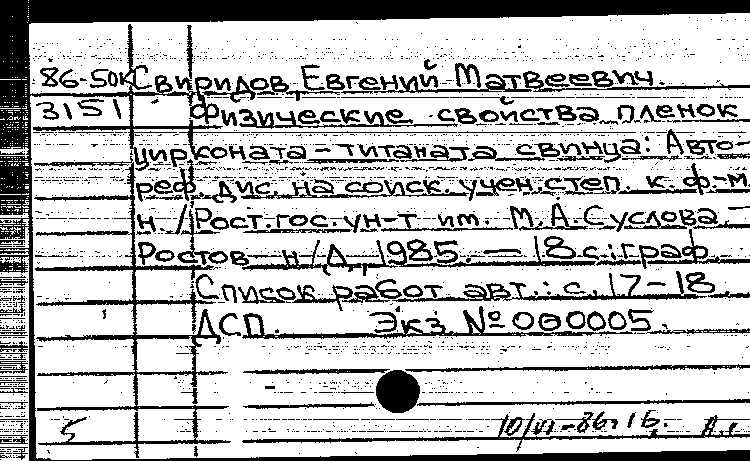 86-50К Свиридов, Евгений Матвеевич.
3151 Физические свойства пленок
цирконата-титаната свинца: Авто-
реф. дис. на соиск. учен. степ. к. ф-м.
н. / Рост. гос. ун-т им. М. А. Суслова. -
Ростов-н/Д, 1985. — 18 с.: граф.
Список работ авт.: с. 17-18.
ДСП. Экз. № 000005.
5